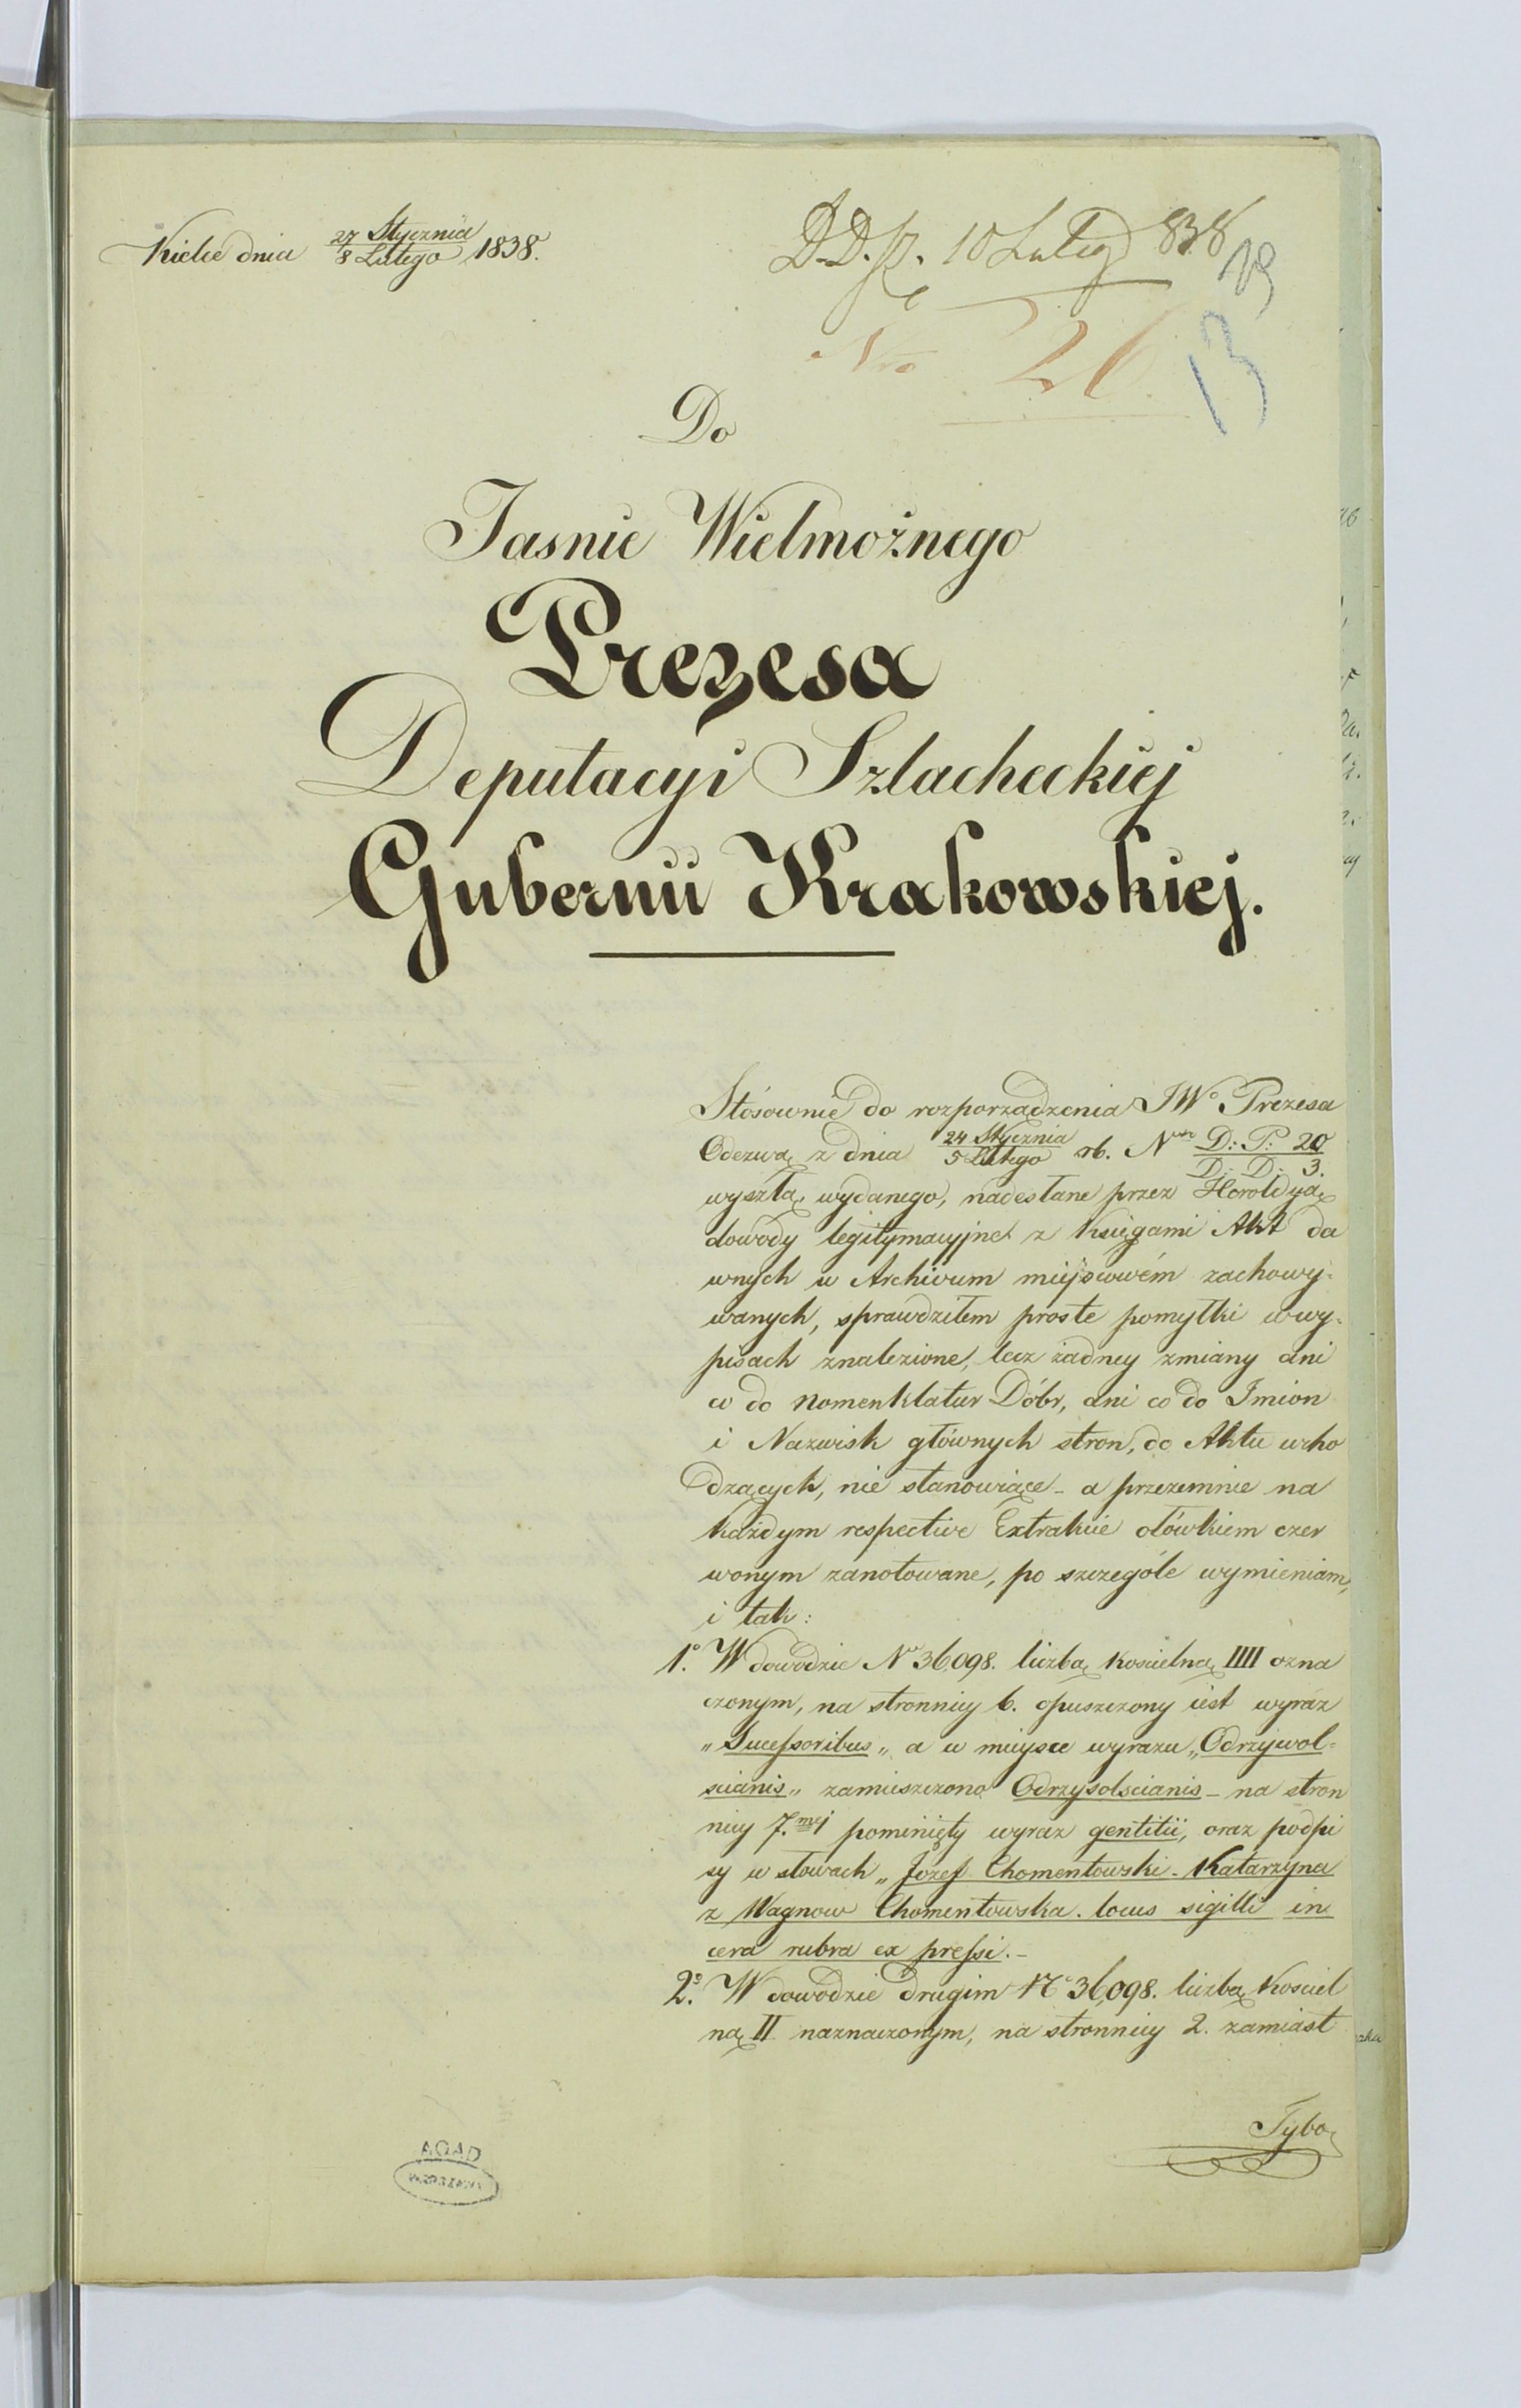 Kielce dnia 27 Stycznia / 8 Lutego 1838.
10 Lutego 838
Nro 26.
13
Do
Jasnie Wielmożnego
Prezesa
Deputacyi Szlacheckiej
Gubernii Krakowskiej.
Stósownie do rozporządzenia JWo Prezesa
Odezwą z dnia 24 Stycznia / 5 Lutego rb. Nrem D: P: 20 / D: D: 3.
wyszłą, wydanego, nadesłane przez Heroldyą
dowody legitymacyjne z Księgami Akt da
wnych w Archivum miejscowém zachowy-
wanych, sprawdziłem proste pomyłki w wy-
pisach znalezione, lecz żadney zmiany ani
co do nomenklatur Dóbr, ani co do Imion
i Nazwisk głównych stron, do Aktu wcho
dzących, nie stanowiące - a przezemnie na
każdym respective Extrakcie ołówkiem czer
wonym zanotowane, po szczególe wymieniam,
i tak:
1o. W dowodzie Nr 36,098. liczbą kościelną IIII ozna
czonym, na stronnicy 6. opuszczony iest wyraz
"Sucessoribus" a w mieysce wyrazu "Odrzywol-
scianis" zamieszczono Odrzysolscianis - na stron
nicy 7.mej pominięty wyraz gentitii, oraz podpi
sy w słowach "Jozef Chomentowski - Katarzyna
z Wagnow Chomentowska. locus sigilli in
cera rubra ex pressi. -
2o. W dowodzie drugim No 36,098. liczbą Kościel
ną II naznaczonym, na stronnicy 2. zamiast
Tybo
AGAD
WARSZAWA